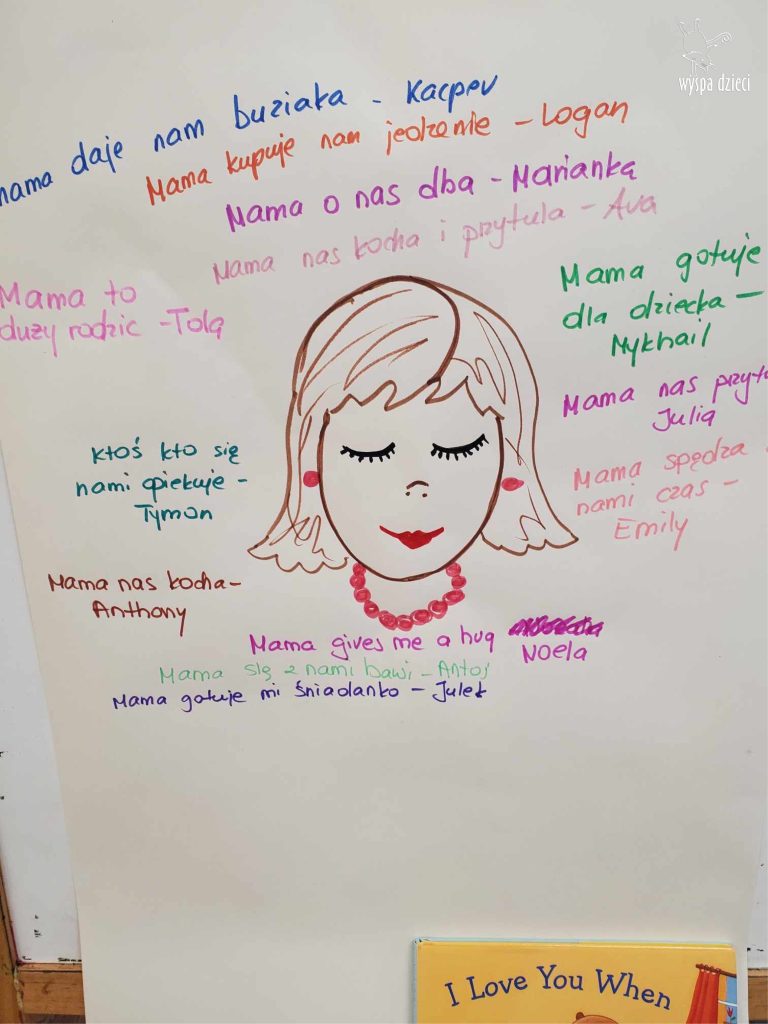 wyspa dzieci
mama daje nam buziaka - Kacper
Mama kupuje nam jedzenie - Logan
Mama o nas dba - Marianka
Mama nas kocha i przytula - Ava
Mama to
duży rodzic - Tola
Mama gotuje
dla dziecka -
Mykhail
Mama nas
Julia
Mama spędza
nami czas -
Emily
Ktoś kto się
nami opiekuje -
Tymon
Mama nas kocha -
Anthony
Mama gives me a hug
Noela
Mama się z nami bawi - Antoś
Mama gotuje mi śniadanko - Julek
I Love You When